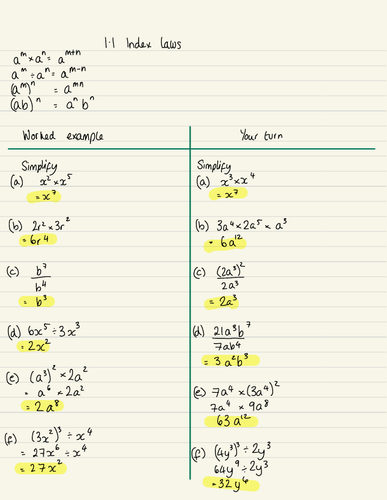 1.1 Index laws
aᵐ × aⁿ = aᵐ⁺ⁿ
aᵐ ÷ aⁿ = aᵐ⁻ⁿ
(aᵐ)ⁿ = aᵐⁿ
(ab)ⁿ = aⁿ bⁿ
Worked example
Simplify
(a) x² × x⁵
= x⁷
(b) 2r² × 3r²
= 6r⁴
(c) b⁷
b⁴
= b³
(d) 6x⁵ ÷ 3x³
= 2x²
(e) (a³)² × 2a²
= a⁶ × 2a²
= 2a⁸
(f) (3x²)³ ÷ x⁴
= 27x⁶ ÷ x⁴
= 27x²
Your turn
Simplify
(a) x³ × x⁴
= x⁷
(b) 3a⁴ × 2a⁵ × a³
= 6a¹²
(c) (2a³)²
2a³
= 2a³
(d) 21a³b⁷
7ab⁴
= 3a²b³
(e) 7a⁴ × (3a⁴)²
7a⁴ × 9a⁸
63a¹²
(f) (4y³)³ ÷ 2y³
64y⁹ ÷ 2y³
= 32y⁶